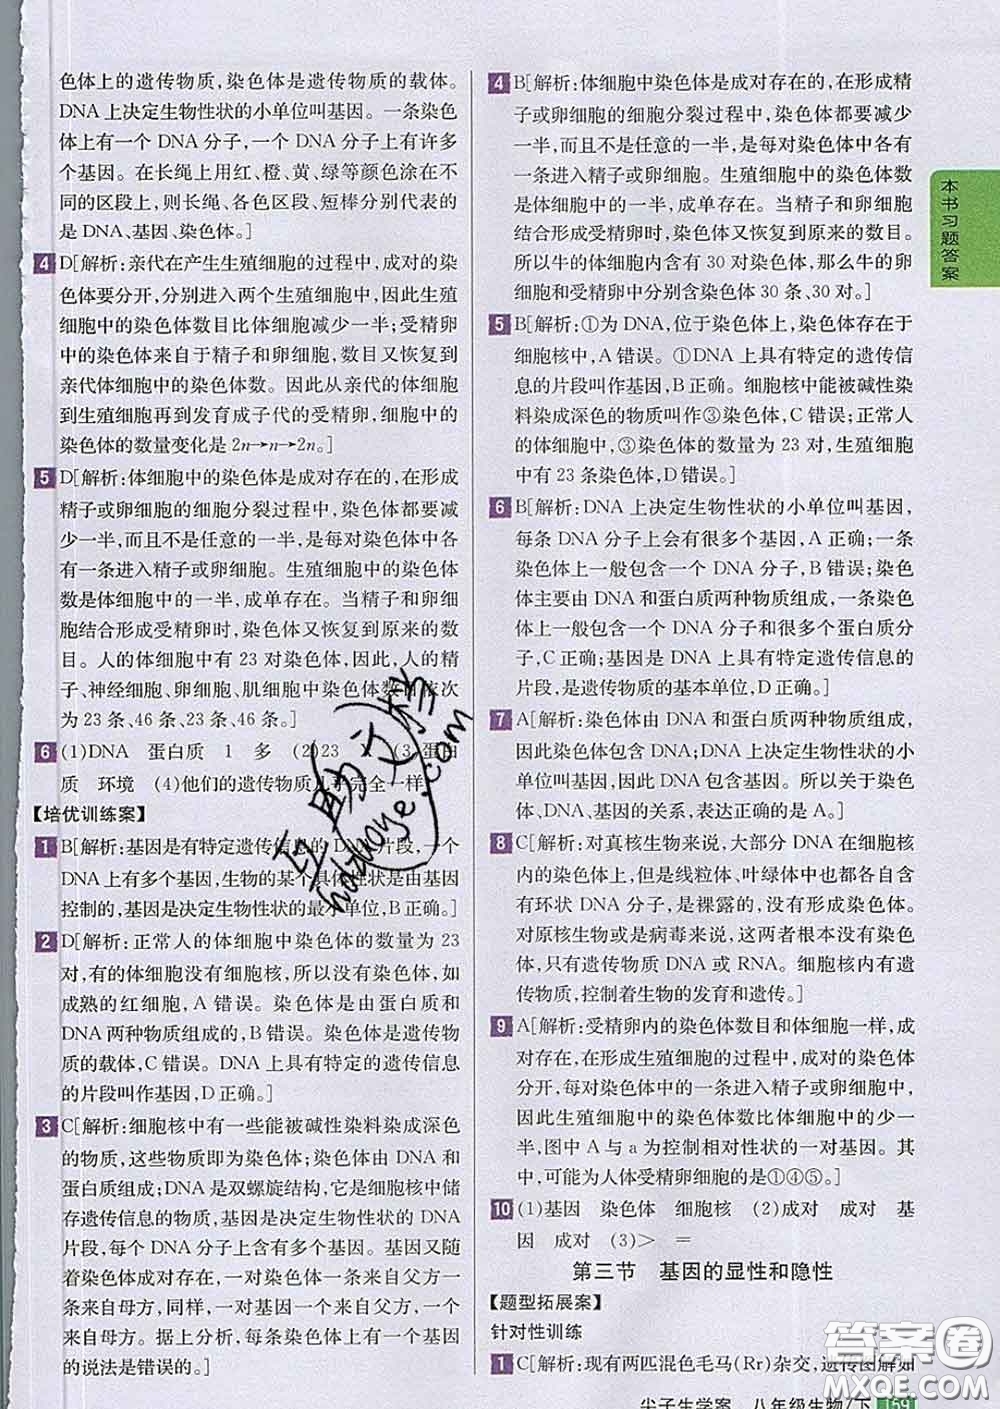 色体上的遗传物质,染色体是遗传物质的载体。
DNA 上决定生物性状的小单位叫基因。一条染色
体上有一个 DNA 分子,一个 DNA 分子上有许多
个基因。在长绳上用红、橙、黄、绿等颜色涂在不
同的区段上,则长绳、各色区段、短棒分别代表的
是 DNA、基因、染色体。]
4 D[解析:亲代在产生生殖细胞的过程中,成对的染
色体要分开,分别进入两个生殖细胞中,因此生殖
细胞中的染色体数目比体细胞减少一半;受精卵
中的染色体来自于精子和卵细胞,数目又恢复到
亲代体细胞中的染色体数。因此从亲代的体细胞
到生殖细胞再到发育成子代的受精卵,细胞中的
染色体的数量变化是 2n→n→2n。]
5 D[解析:体细胞中的染色体是成对存在的,在形成
精子或卵细胞的细胞分裂过程中,染色体都要减
少一半,而且不是任意的一半,是每对染色体中各
有一条进入精子或卵细胞。生殖细胞中的染色体
数是体细胞中的一半,成单存在。当精子和卵细
胞结合形成受精卵时,染色体又恢复到原来的数
目。人的体细胞中有 23 对染色体,因此,人的精
子、神经细胞、卵细胞、肌细胞中染色体数目依次
为 23 条、46 条、23 条、46 条。]
6 (1)DNA 蛋白质 1 多 (2)23 (3)蛋白
质 环境 (4)他们的遗传物质几乎完全一样
【培优训练案】
1 B[解析:基因是有特定遗传信息的 DNA 片段,一个
DNA 上有多个基因,生物的某个具体性状是由基因
控制的,基因是决定生物性状的最小单位,B 正确。]
2 D[解析:正常人的体细胞中染色体的数量为 23
对,有的体细胞没有细胞核,所以没有染色体,如
成熟的红细胞,A 错误。染色体是由蛋白质和
DNA 两种物质组成的,B 错误。染色体是遗传物
质的载体,C 错误。DNA 上具有特定的遗传信息
的片段叫作基因,D 正确。]
3 C[解析:细胞核中有一些能被碱性染料染成深色
的物质,这些物质即为染色体;染色体是由 DNA
和蛋白质组成;DNA 是双螺旋结构,它是细胞中储
存遗传信息的物质,基因是决定生物性状的 DNA
片段,每个 DNA 分子上含有多个基因。基因又随
着染色体成对存在,染色体一条来自父方一条来
自母方,同样,一对基因一个来自父方,一个来自
母方。据上分析,每条染色体上只含有一个基因
的说法是错误的。]
4 B[解析:体细胞中染色体是成对存在的,在形成精
子或卵细胞的细胞分裂过程中,染色体都要减少
一半,而且不是任意的一半,是每对染色体中各有
一条进入精子或卵细胞。生殖细胞中的染色体数
是体细胞中的一半,成单存在。当精子和卵细胞
结合形成受精卵时,染色体又恢复到原来的数目。
所以牛的体细胞内含有 30 对染色体,那么牛的卵
细胞和受精卵中分别含染色体 30 条、30 对。]
5 B[解析:①为 DNA,位于染色体上,染色体存在于
细胞核中,A 错误。①DNA 上具有特定的遗传信
息的片段叫作基因,B 正确。细胞核中能被碱性染
料染成深色的物质叫作③染色体,C 错误;正常人
的体细胞中,③染色体的数量为 23 对,生殖细胞
中有 23 条染色体,D 错误。]
6 B[解析:DNA 上决定生物性状的小单位叫基因,
每条 DNA 分子会有很多个基因,A 正确;一条
染色体上一般包含一个 DNA 分子,B 错误;染色
体主要由 DNA 和蛋白质两种物质组成,一条染色
体上一般包含一个 DNA 分子和很多个蛋白质分
子,C 正确;基因是 DNA 上具有特定遗传信息的
片段,是遗传物质的基本单位,D 正确。]
7 A[解析:染色体由 DNA 和蛋白质两种物质组成,
因此染色体包含 DNA;DNA 上决定生物性状的小
单位叫基因,因此 DNA 包含基因。所以关于染色
体、DNA、基因的关系,表达正确的是 A。]
8 C[解析:对真核生物来说,大部分 DNA 在细胞核
内的染色体上,但是线粒体、叶绿体中也都各自含
有环状 DNA 分子,是裸露的,没有形成染色体。
对原核生物或是病毒来说,这两者根本没有染色
体,只有遗传物质 DNA 或 RNA。细胞核内有遗
传物质,控制着生物的发育和遗传。]
9 A[解析:受精卵内的染色体数目和体细胞一样,成
对存在,在形成生殖细胞的过程中,成对的染色体
分开,而且染色体中的一条进入精子或卵细胞中,
因此生殖细胞中的染色体数比体细胞中的少一
半,图中 A 与 a 为控制相对性状的一对基因。其
中,可能为人体受精卵细胞的是①④⑤。]
10 (1)基因 染色体 细胞核 (2)成对 成对 基
因 成对 (3)> =
第三节 基因的显性和隐性
【题型拓展案】
针对性训练
1 C[解析:现有两匹混色毛马(Rr)杂交,遗传图解如
本书习题答案
尖子生学案 八年级生物/下 159
互助文档
hdzuoye.com
答案圈
MXQE.COM